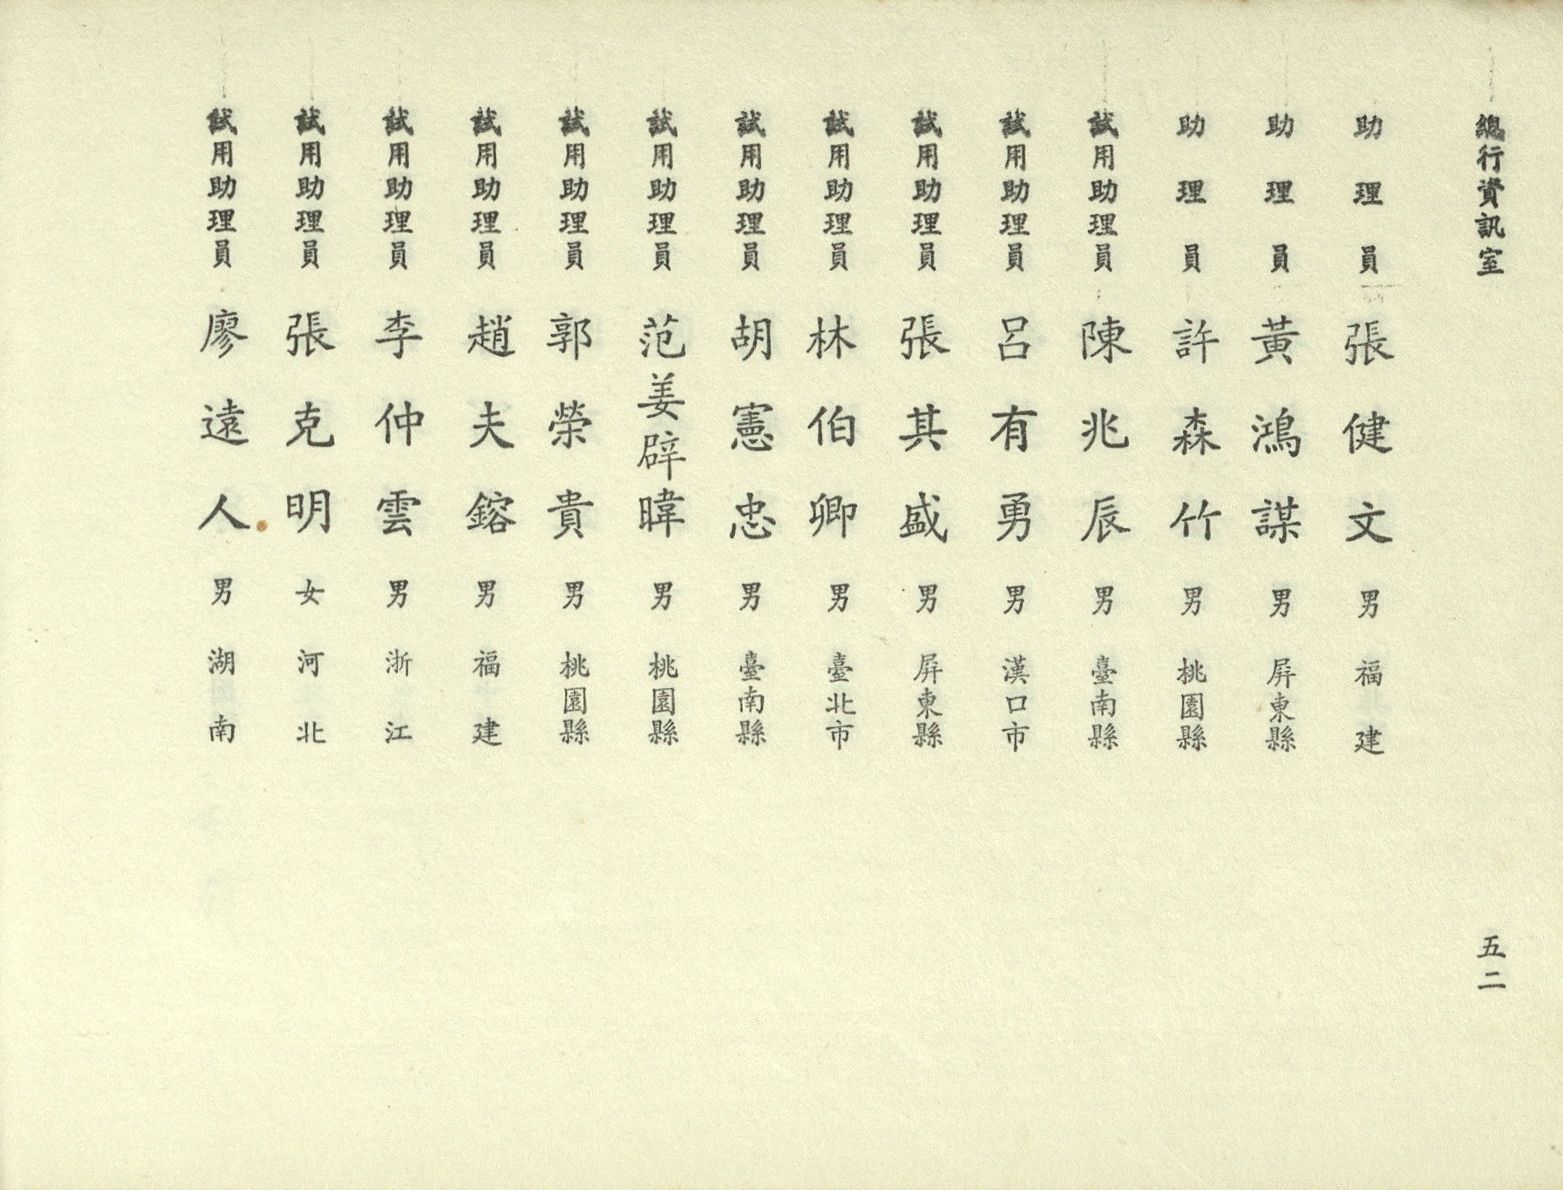 總行資訊室 五二
助理員 張健文 男 福建
助理員 黃鴻謀 男 屏東縣
助理員 許森竹 男 桃園縣
試用助理員 陳兆辰 男 臺南縣
試用助理員 呂有勇 男 漢口市
試用助理員 張其盛 男 屏東縣
試用助理員 林伯卿 男 臺北市
試用助理員 胡憲忠 男 臺南縣
試用助理員 范姜辟暐 男 桃園縣
試用助理員 郭榮貴 男 桃園縣
試用助理員 趙夫鎔 男 福建
試用助理員 李仲雲 男 浙江
試用助理員 張克明 女 河北
試用助理員 廖遠人 男 湖南